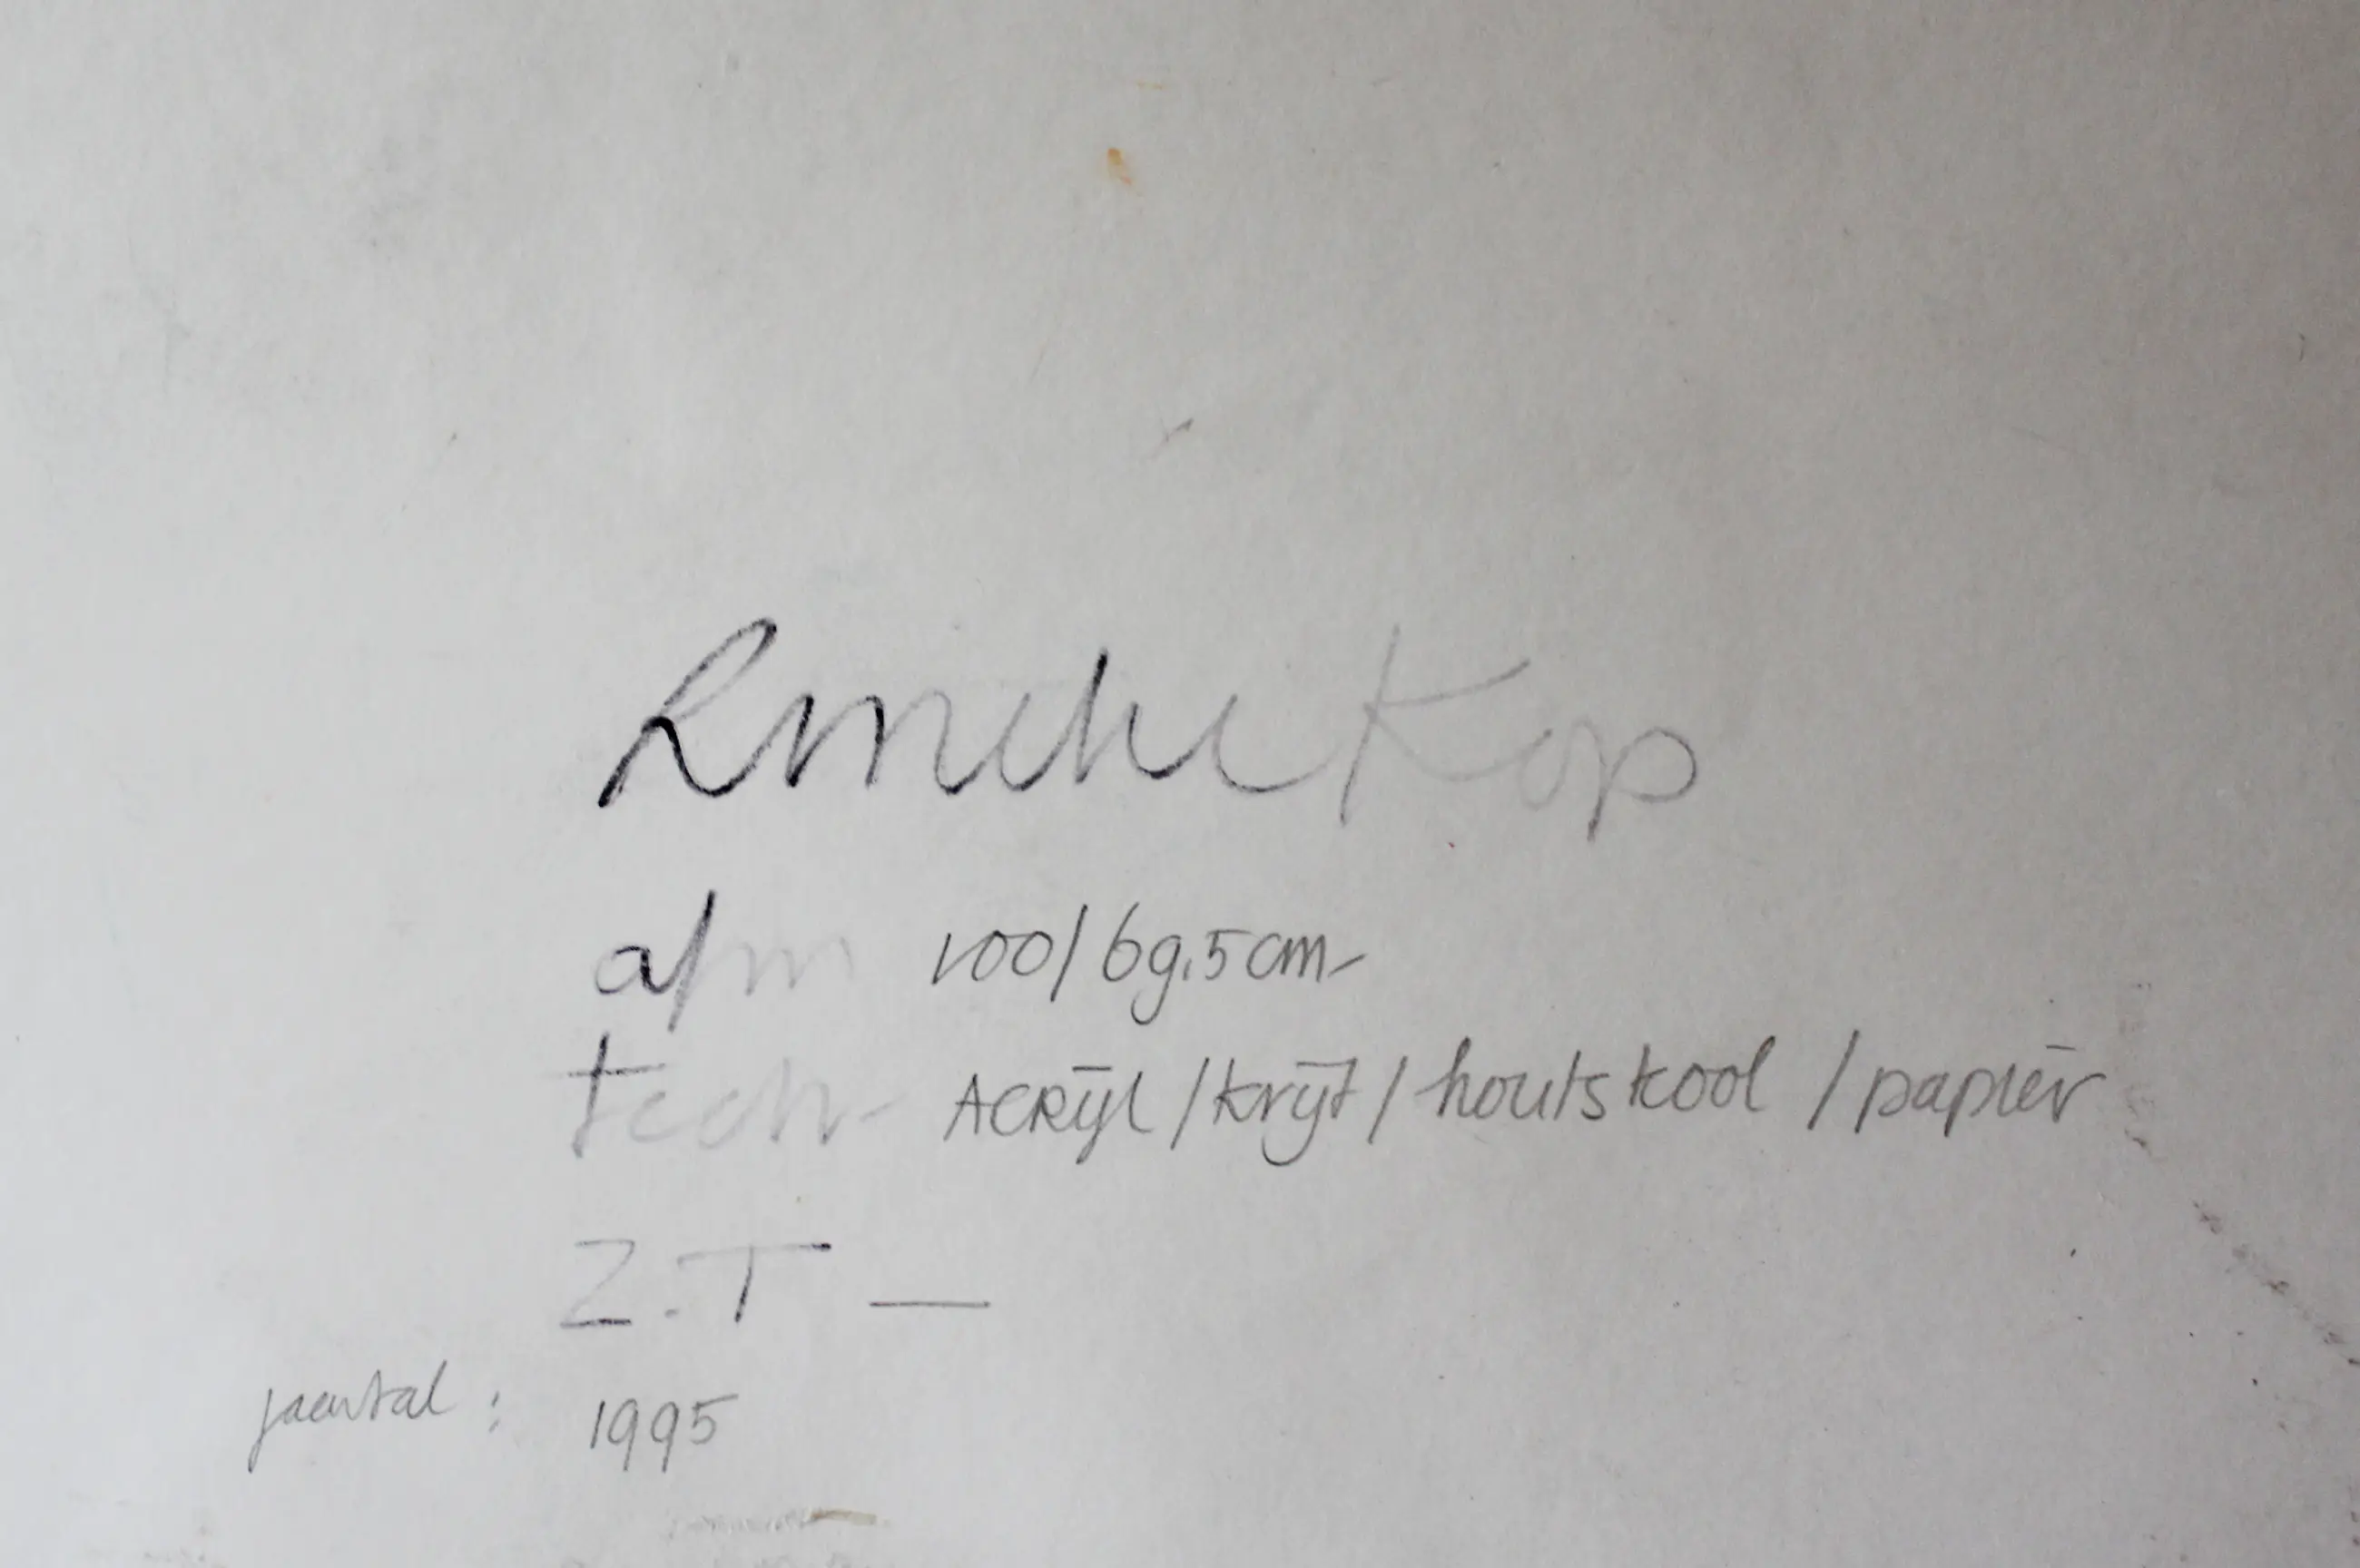 Rineke Kop
afm 100/69.5 cm
tech- ACRijl / krijt / houtskool / papier
Z.T —
jaartal : 1995